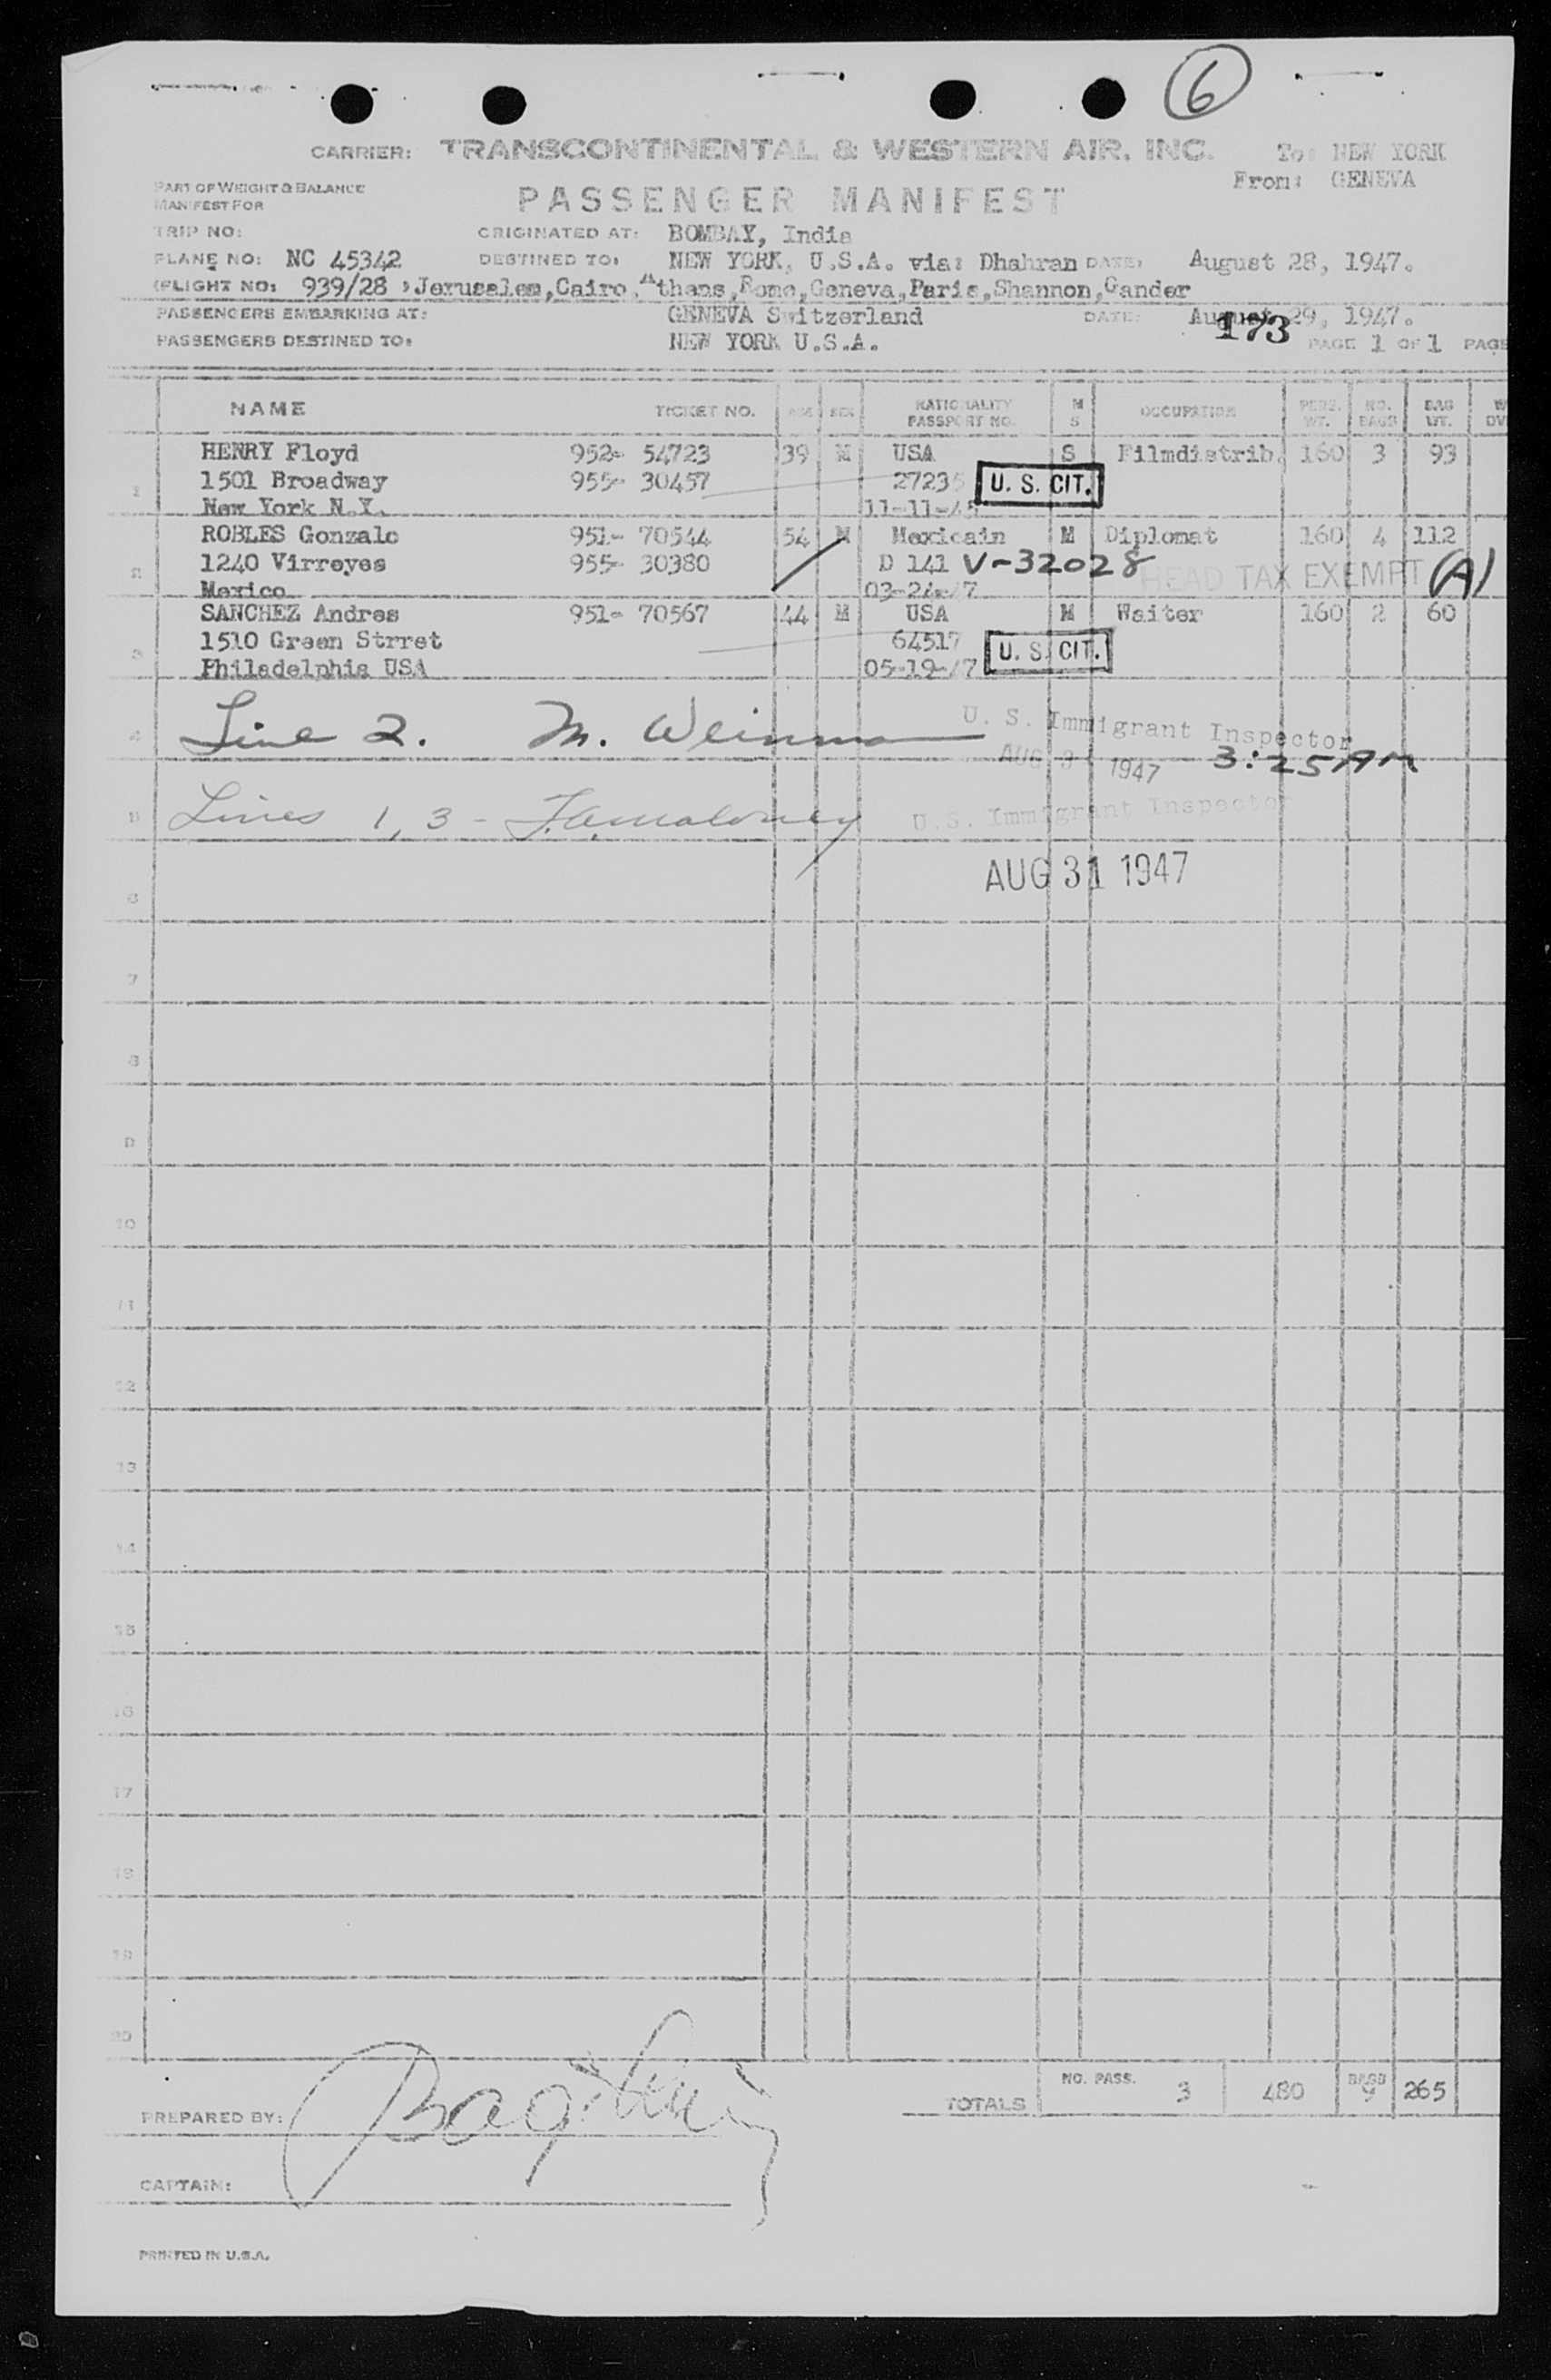 6
CARRIER: TRANSCONTINENTAL & WESTERN AIR, INC. To: NEW YORK
From: GENEVA
PART OF WEIGHT & BALANCE
MANIFEST FOR
PASSENGER MANIFEST
TRIP NO: ORIGINATED AT: BOMBAY, India
PLANE NO: NC 45342 DESTINED TO: NEW YORK, U.S.A. via: Dhahran DATE: August 28, 1947.
FLIGHT NO: 939/28 ,Jerusalem,Cairo,Athens,Rome,Geneva,Paris,Shannon,Gander
PASSENGERS EMBARKING AT: GENEVA Switzerland DATE: August 29, 1947.
PASSENGERS DESTINED TO: NEW YORK U.S.A. 173 PAGE 1 OF 1 PAGE
NAME TICKET NO. AGE SEX NATIONALITY PASSPORT NO. M S OCCUPATION PERS. WT. NO. BAGS BAG WT.
HENRY Floyd 952- 54723 39 M USA S Filmdistrib. 160 3 93
1 1501 Broadway 955- 30457 27235 U. S. CIT.
New York N.Y. 11-11-45
ROBLES Gonzalo 951- 70544 54 M Mexicain M Diplomat 160 4 112
2 1240 Virreyes 955- 30380 D 141 V-32028 HEAD TAX EXEMPT (A)
Mexico 03-24-47
SANCHEZ Andres 951- 70567 44 M USA M Waiter 160 2 60
3 1510 Green Strret 64517 U. S. CIT.
Philadelphia USA 05-19-47
4 Line 2. M. Weinman U. S. Immigrant Inspector
AUG 31 1947 3:25 AM
5 Lines 1, 3 - U.S. Immigrant Inspector
6 AUG 31 1947
7
8
9
10
11
12
13
14
15
16
17
18
19
20
TOTALS NO. PASS. 3 480 BAGS 9 265
PREPARED BY:
CAPTAIN:
PRINTED IN U.S.A.